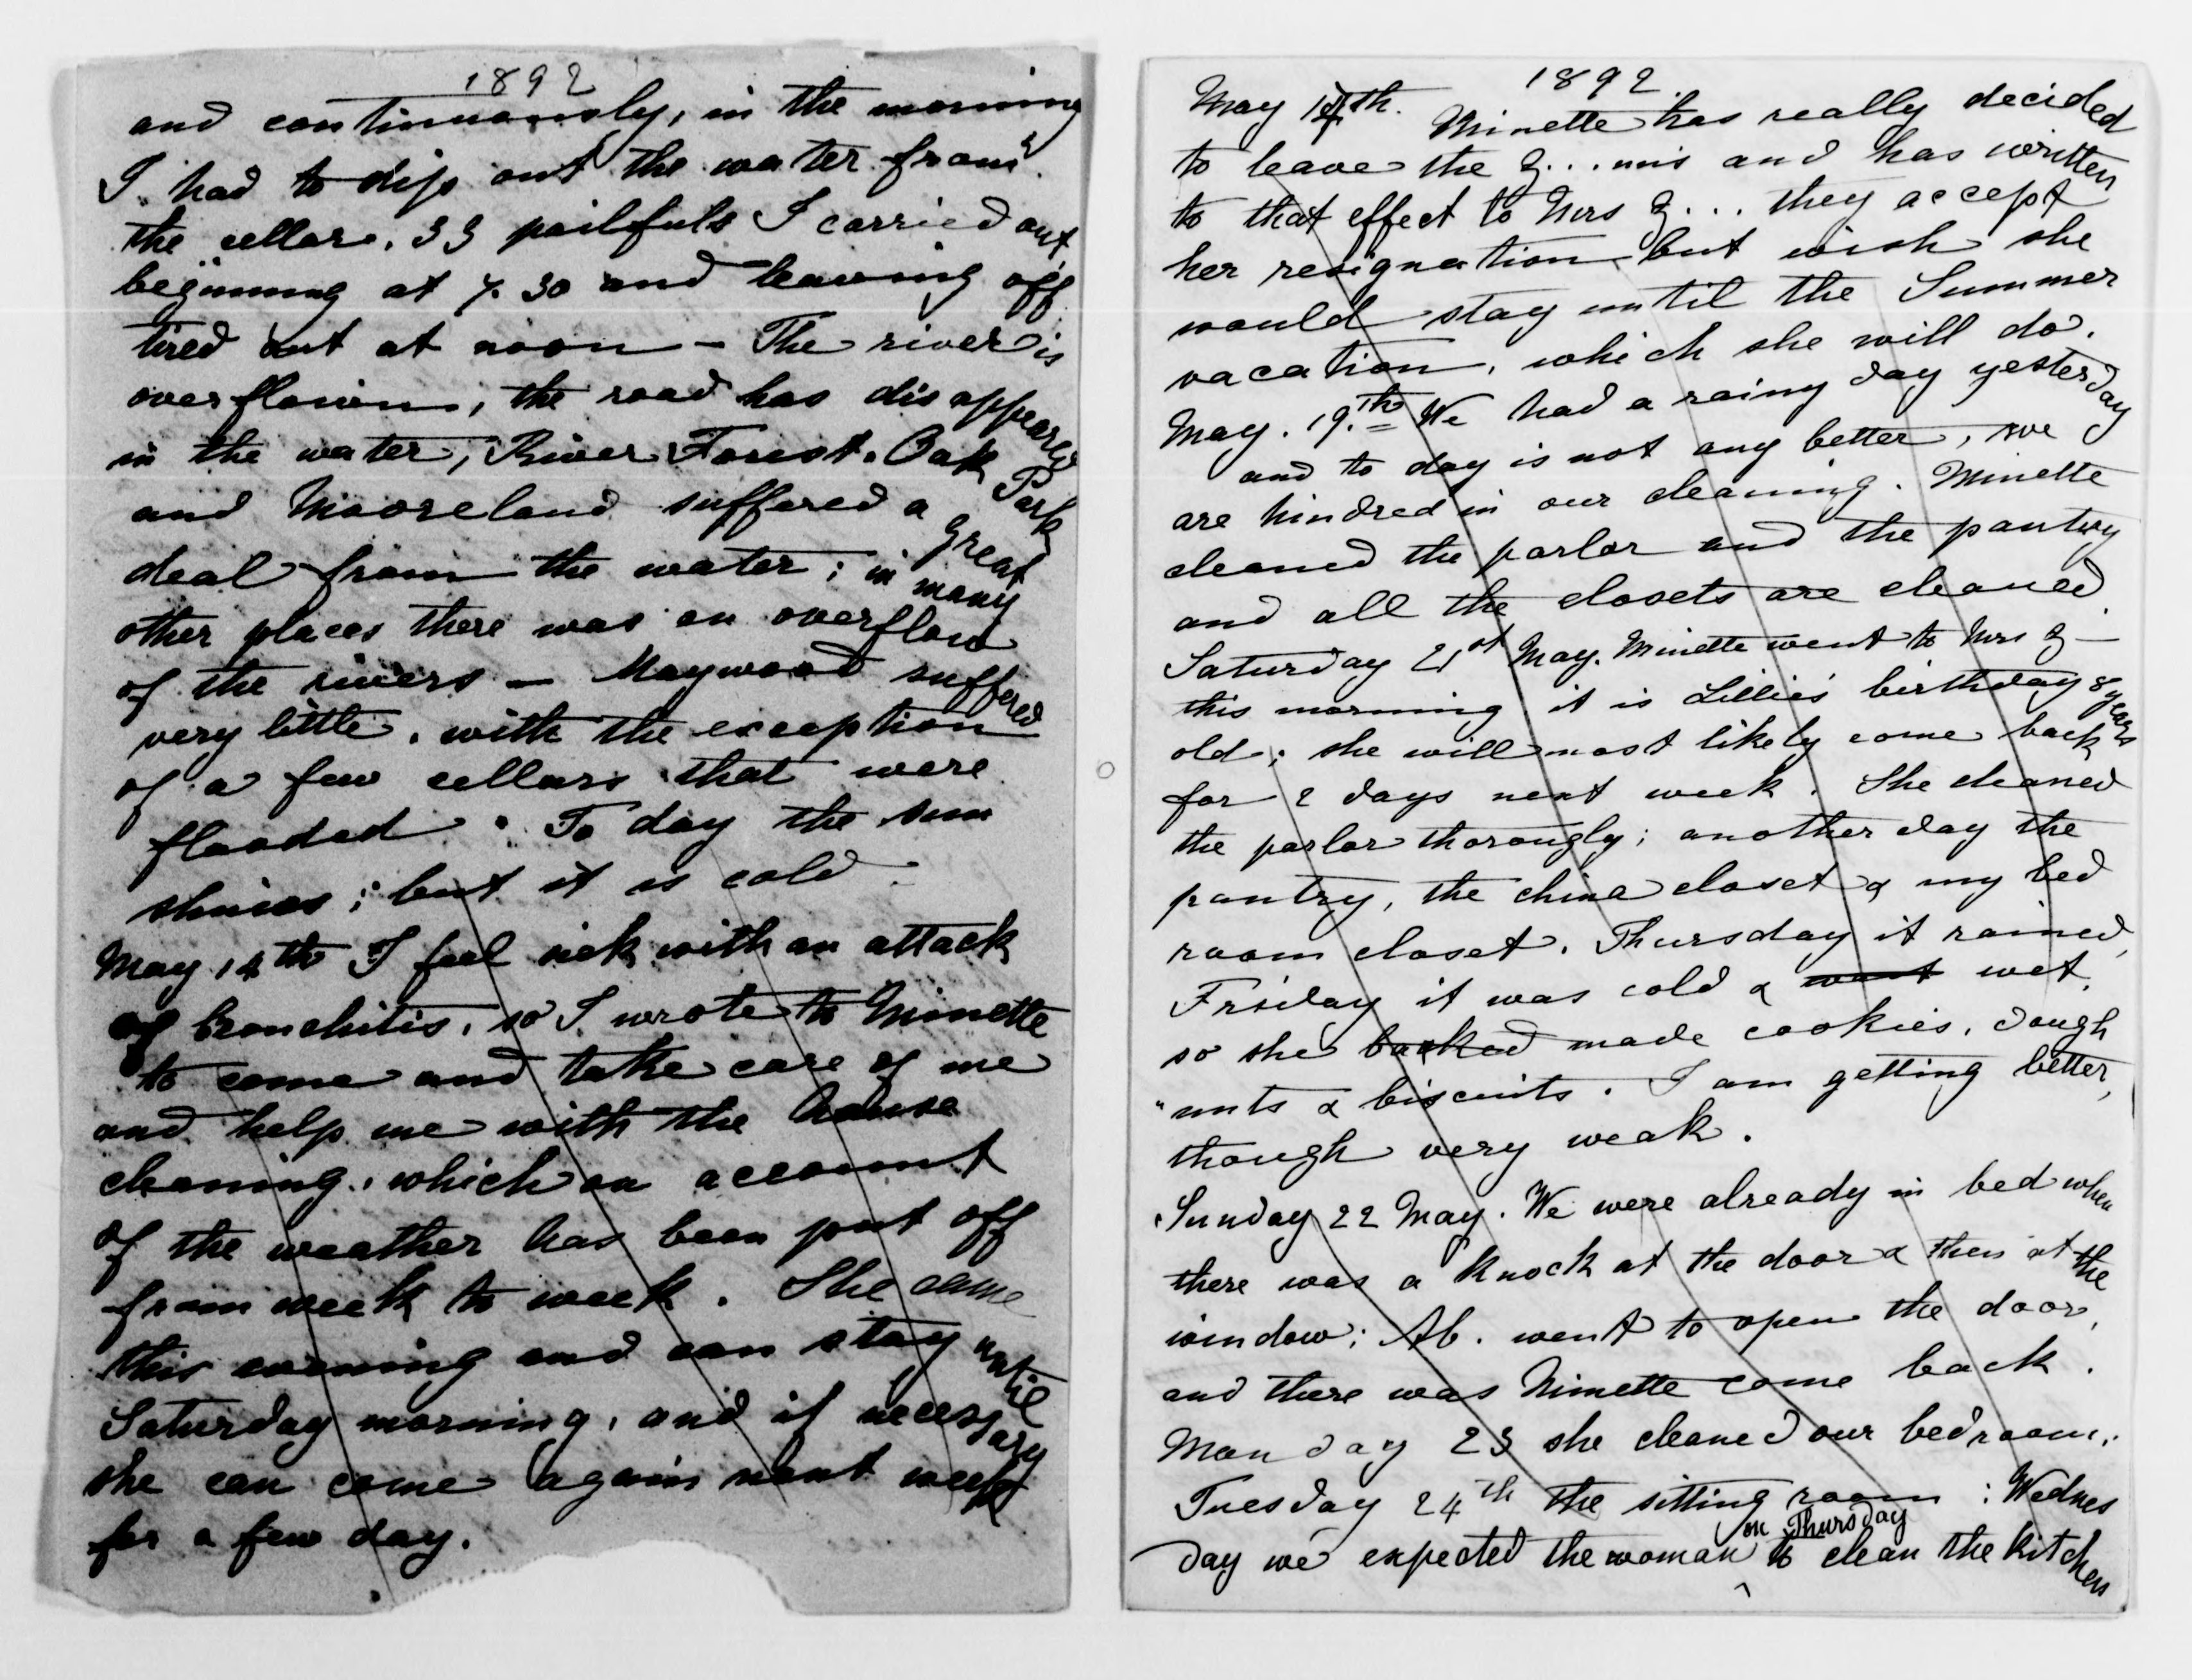 1892
and continuously, in the morning
I had to dip out the water from
the cellar, 33 pailfuls I carried out,
beginning at 7.30 and leaving off
tired out at noon — The river is
overflown, the road has disappeared
in the water, River Forest. Oak Park
and Mooreland suffered a great
deal from the water; in many
other places there was an overflow
of the rivers — Maywood suffered
very little, with the exception
of a few cellars that were
flooded. To day the sun
shines; but it is cold —
May 14th I feel sick with an attack
of bronchitis, so I wrote to Minette
to come and take care of me
and help me with the house
cleaning, which on account
of the weather has been put off
from week to week. She came
this evening and can stay until
Saturday morning, and if necessary
she can come again next week
for a few day.
1892.
May th. Minette has really decided
to leave the G...nn's and has written
to that effect to Mrs G... they accept
her resignation but wish she
would stay until the Summer
vacation, which she will do.
May. 19.th We had a rainy day yesterday
and to day is not any better, we
are hindred in our cleaning. Minette
cleaned the parlor and the pantry
and all the closets are cleaned.
Saturday 21st May. Minette went to Mrs G—
this morning it is Lillie's birthday 8 years
old; she will most likely come back
for 2 days next week. She cleaned
the parlor thorougly; another day the
pantry, the china closet & my bed
room closet. Thursday it rained,
Friday it was cold & went wet,
so she backed made cookies, dough
"nuts & biscuits. I am getting better,
though very weak.
Sunday 22 May. We were already in bed when
there was a knock at the door & then at the
window; Ab. went to open the door,
and there was Minette come back.
Monday 23 she cleaned our bedroom,
Tuesday 24th the sitting room; Wednes
on Thursday
day we expected the woman to clean the kitchen